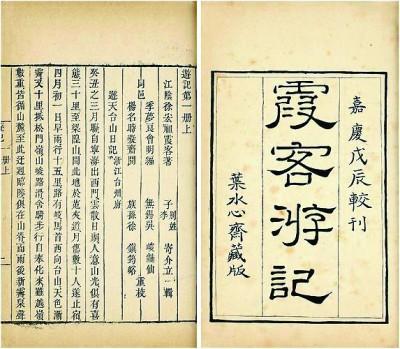 嘉慶戊辰較刊
霞客游記
葉水心齋藏版
遊記第一册上
江陰徐宏祖霞客著
子李寄介立輯
同邑
季夢良會明編
楊名時凝齋閱
無錫吳峻
族孫徐鎮筠峪
重校
遊天台山日記 浙江台州府
癸丑之三月晦自寧海出西門雲散日朗人意山光俱有喜
態三十里至梁隍山聞此地於菟夾道月傷數十人遂止宿
四月初一日早雨行十五里路有岐馬首西向台山天色漸
霽又十里抵松門嶺山峻路滑舍騎步行自奉化來雖越嶺
數重皆循山麓至此迂迴臨陟俱在山脊而雨後新霽泉聲